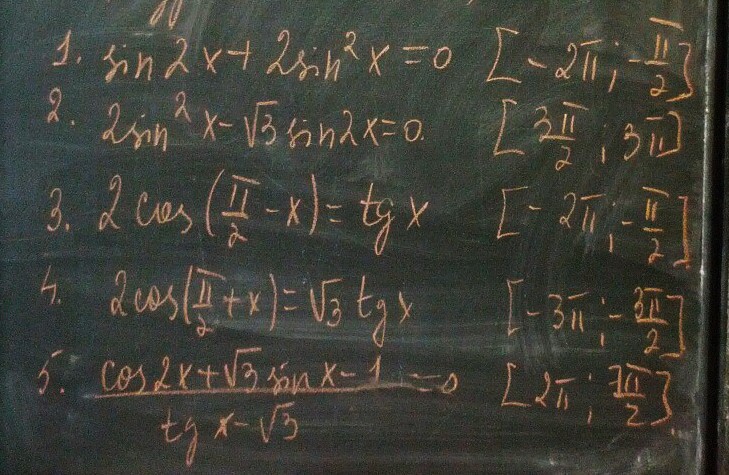 1. sin2x + 2sin²x = 0 [-2π; -π/2]
2. 2sin²x - √3 sin2x = 0. [3π/2; 3π]
3. 2cos(π/2 - x) = tgx [-2π; -π/2]
4. 2cos(π/2 + x) = √3 tgx [-3π; -3π/2]
5. (cos2x + √3 sinx - 1)/(tgx - √3) = 0 [2π; 7π/2]